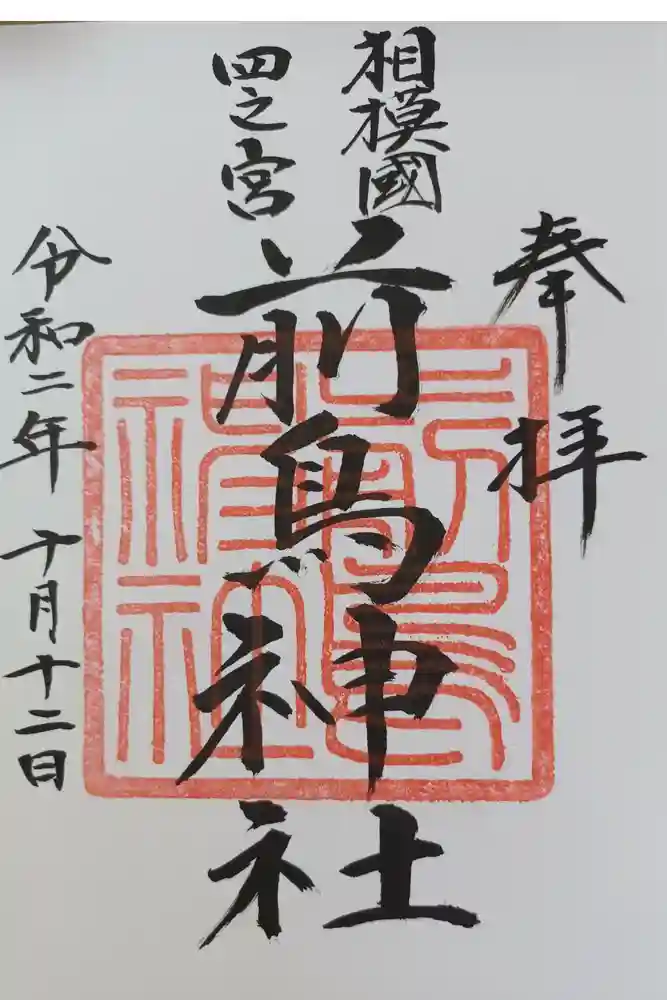 奉拝
相模國
四之宮
前鳥神社
令和二年 十月十二日